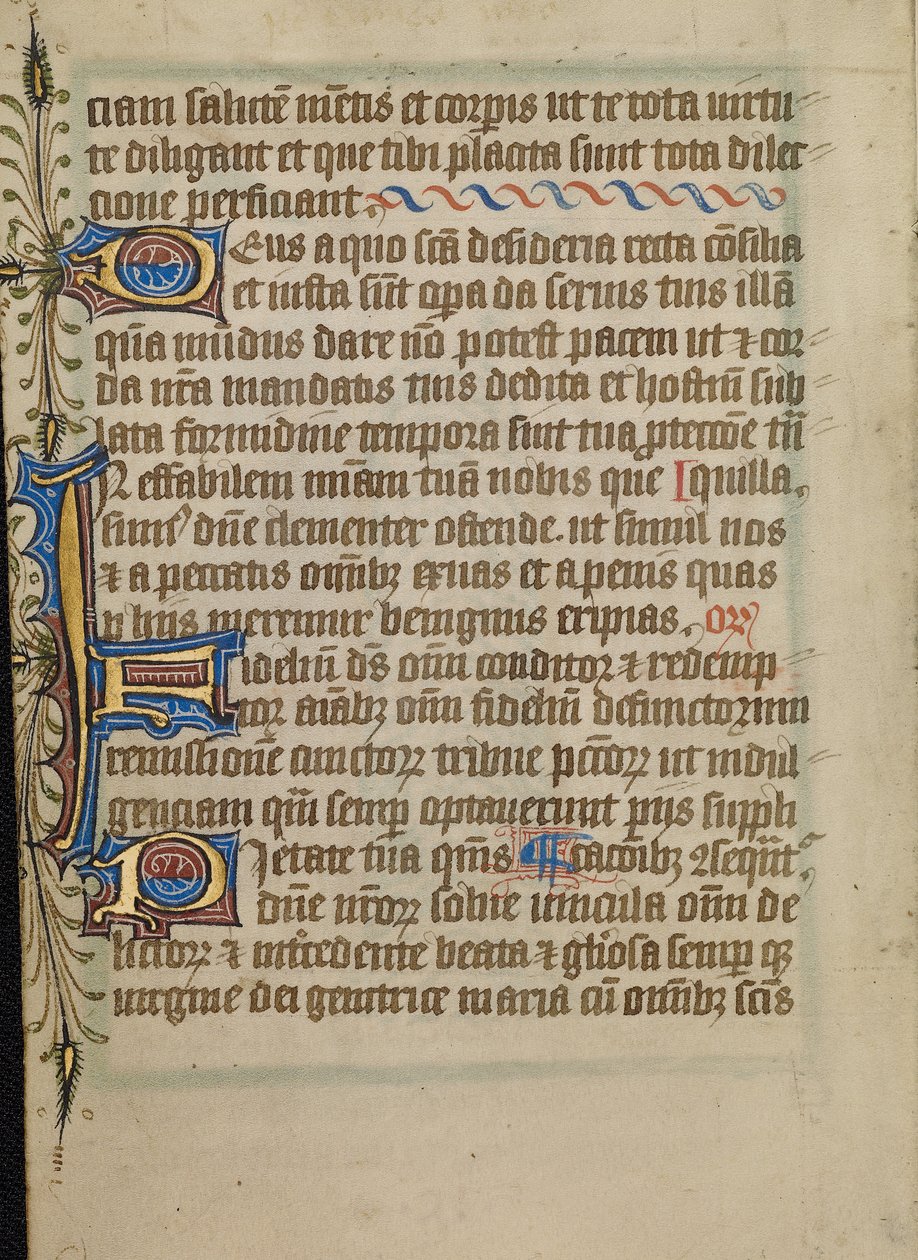 ciam salutē mētis et corpis ut te tota uirtu
te diligant et que tibi placita sunt tota dilec
cione perficiant
Deus a quo sc̄a desideria recta cōsilia
et iusta sūt opa da seruis tuis illā
quā mūdus dare nō potest pacem ut ⁊ cor
da nr̄a mandatis tuis dedita et hostiū sub
lata formidine tempora sint tua ꝓteccōe tn̄
Ineffabilem mīam tuā nobis que I quilla
sum⁹ dn̄e clementer ostende. ut simul nos
⁊ a peccatis om̄ibꝫ exuas et a penis quas
ꝓ hiis meremur benignus eripias. or̄
Fideliū ds̄ om̄i conditor ⁊ redemp
tor aīabꝫ om̄i fideliū defunctorum
remissionē cunctoꝝ tribue pc̄toꝝ ut indul
genciam quā semp optauerunt piis suppli
Pietate tua qm̄s ¶ cacōibꝫ ꝯsequāt᷑
dn̄e nr̄oꝝ solue uincula om̄i de
lictoꝝ ⁊ int̄cedente beata ⁊ gl̄iosa semp qꝫ
uirgine dei genitrice maria cū om̄ibꝫ scīs